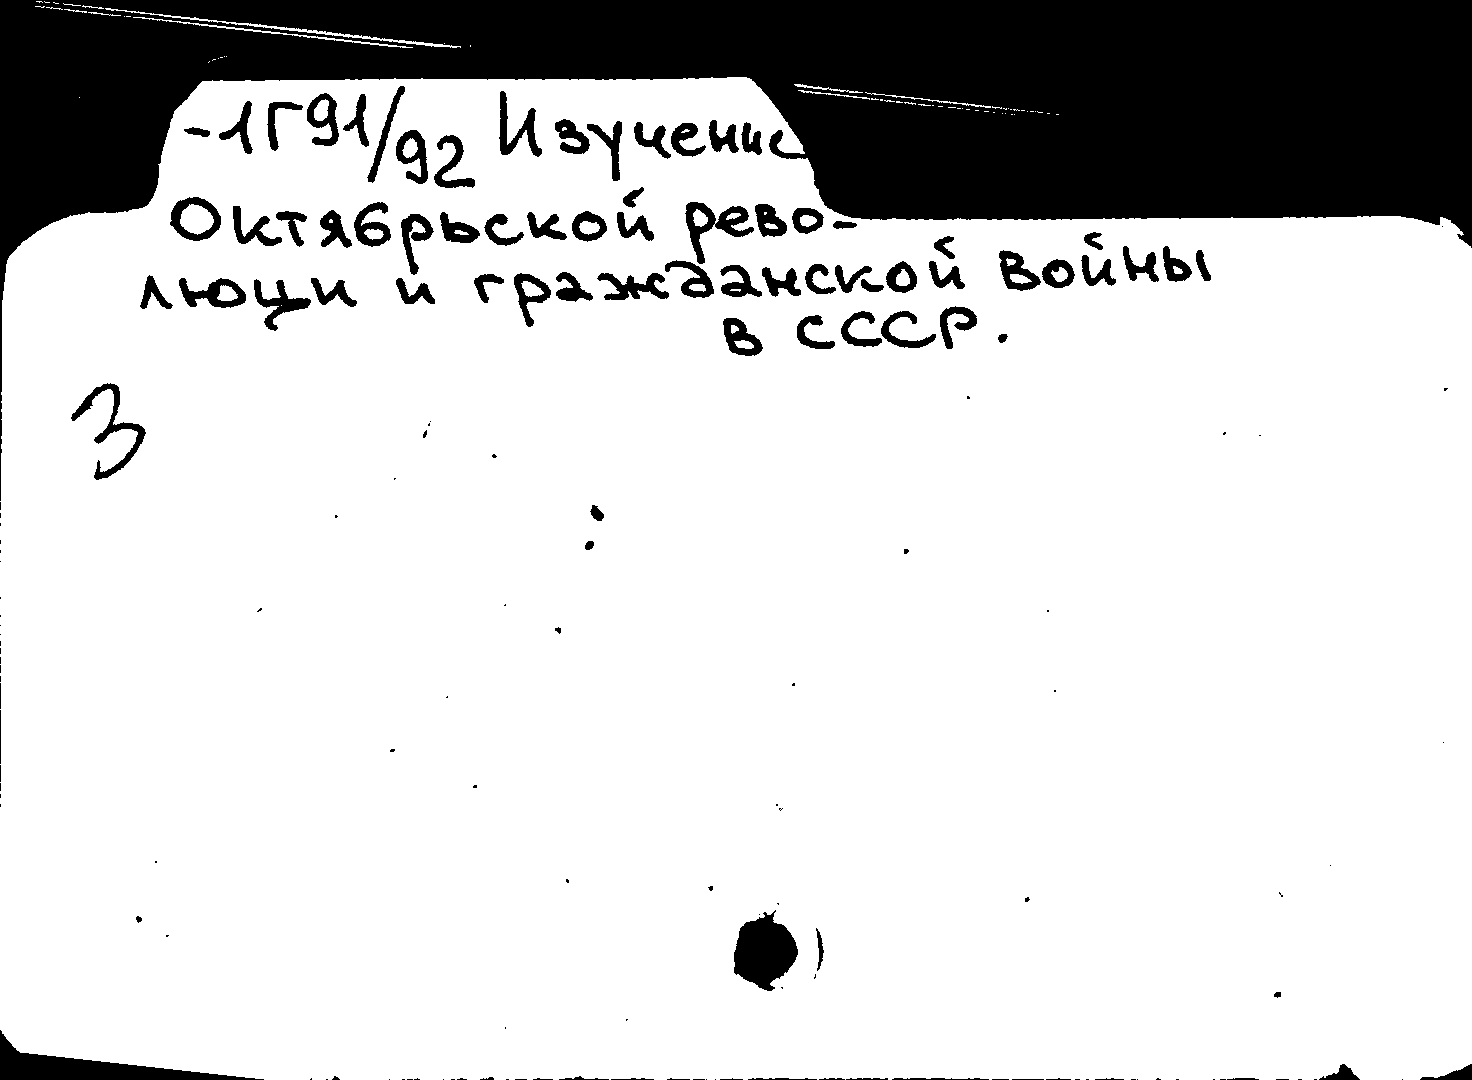 -1Г91/92 Изучение
Октябрьской рево-
люции и гражданской войны
в СССР.
3